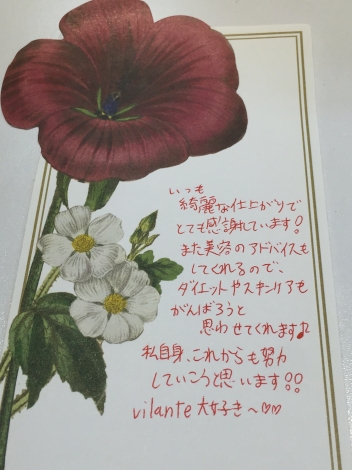 いつも
綺麗な仕上がりで
とても感謝しています！
また美容のアドバイスも
してくれるので、
ダイエットやスキンケアも
がんばろうと
思わせてくれます♪
私自身、これからも努力
していこうと思います！！
vilante大好き〜♡♡